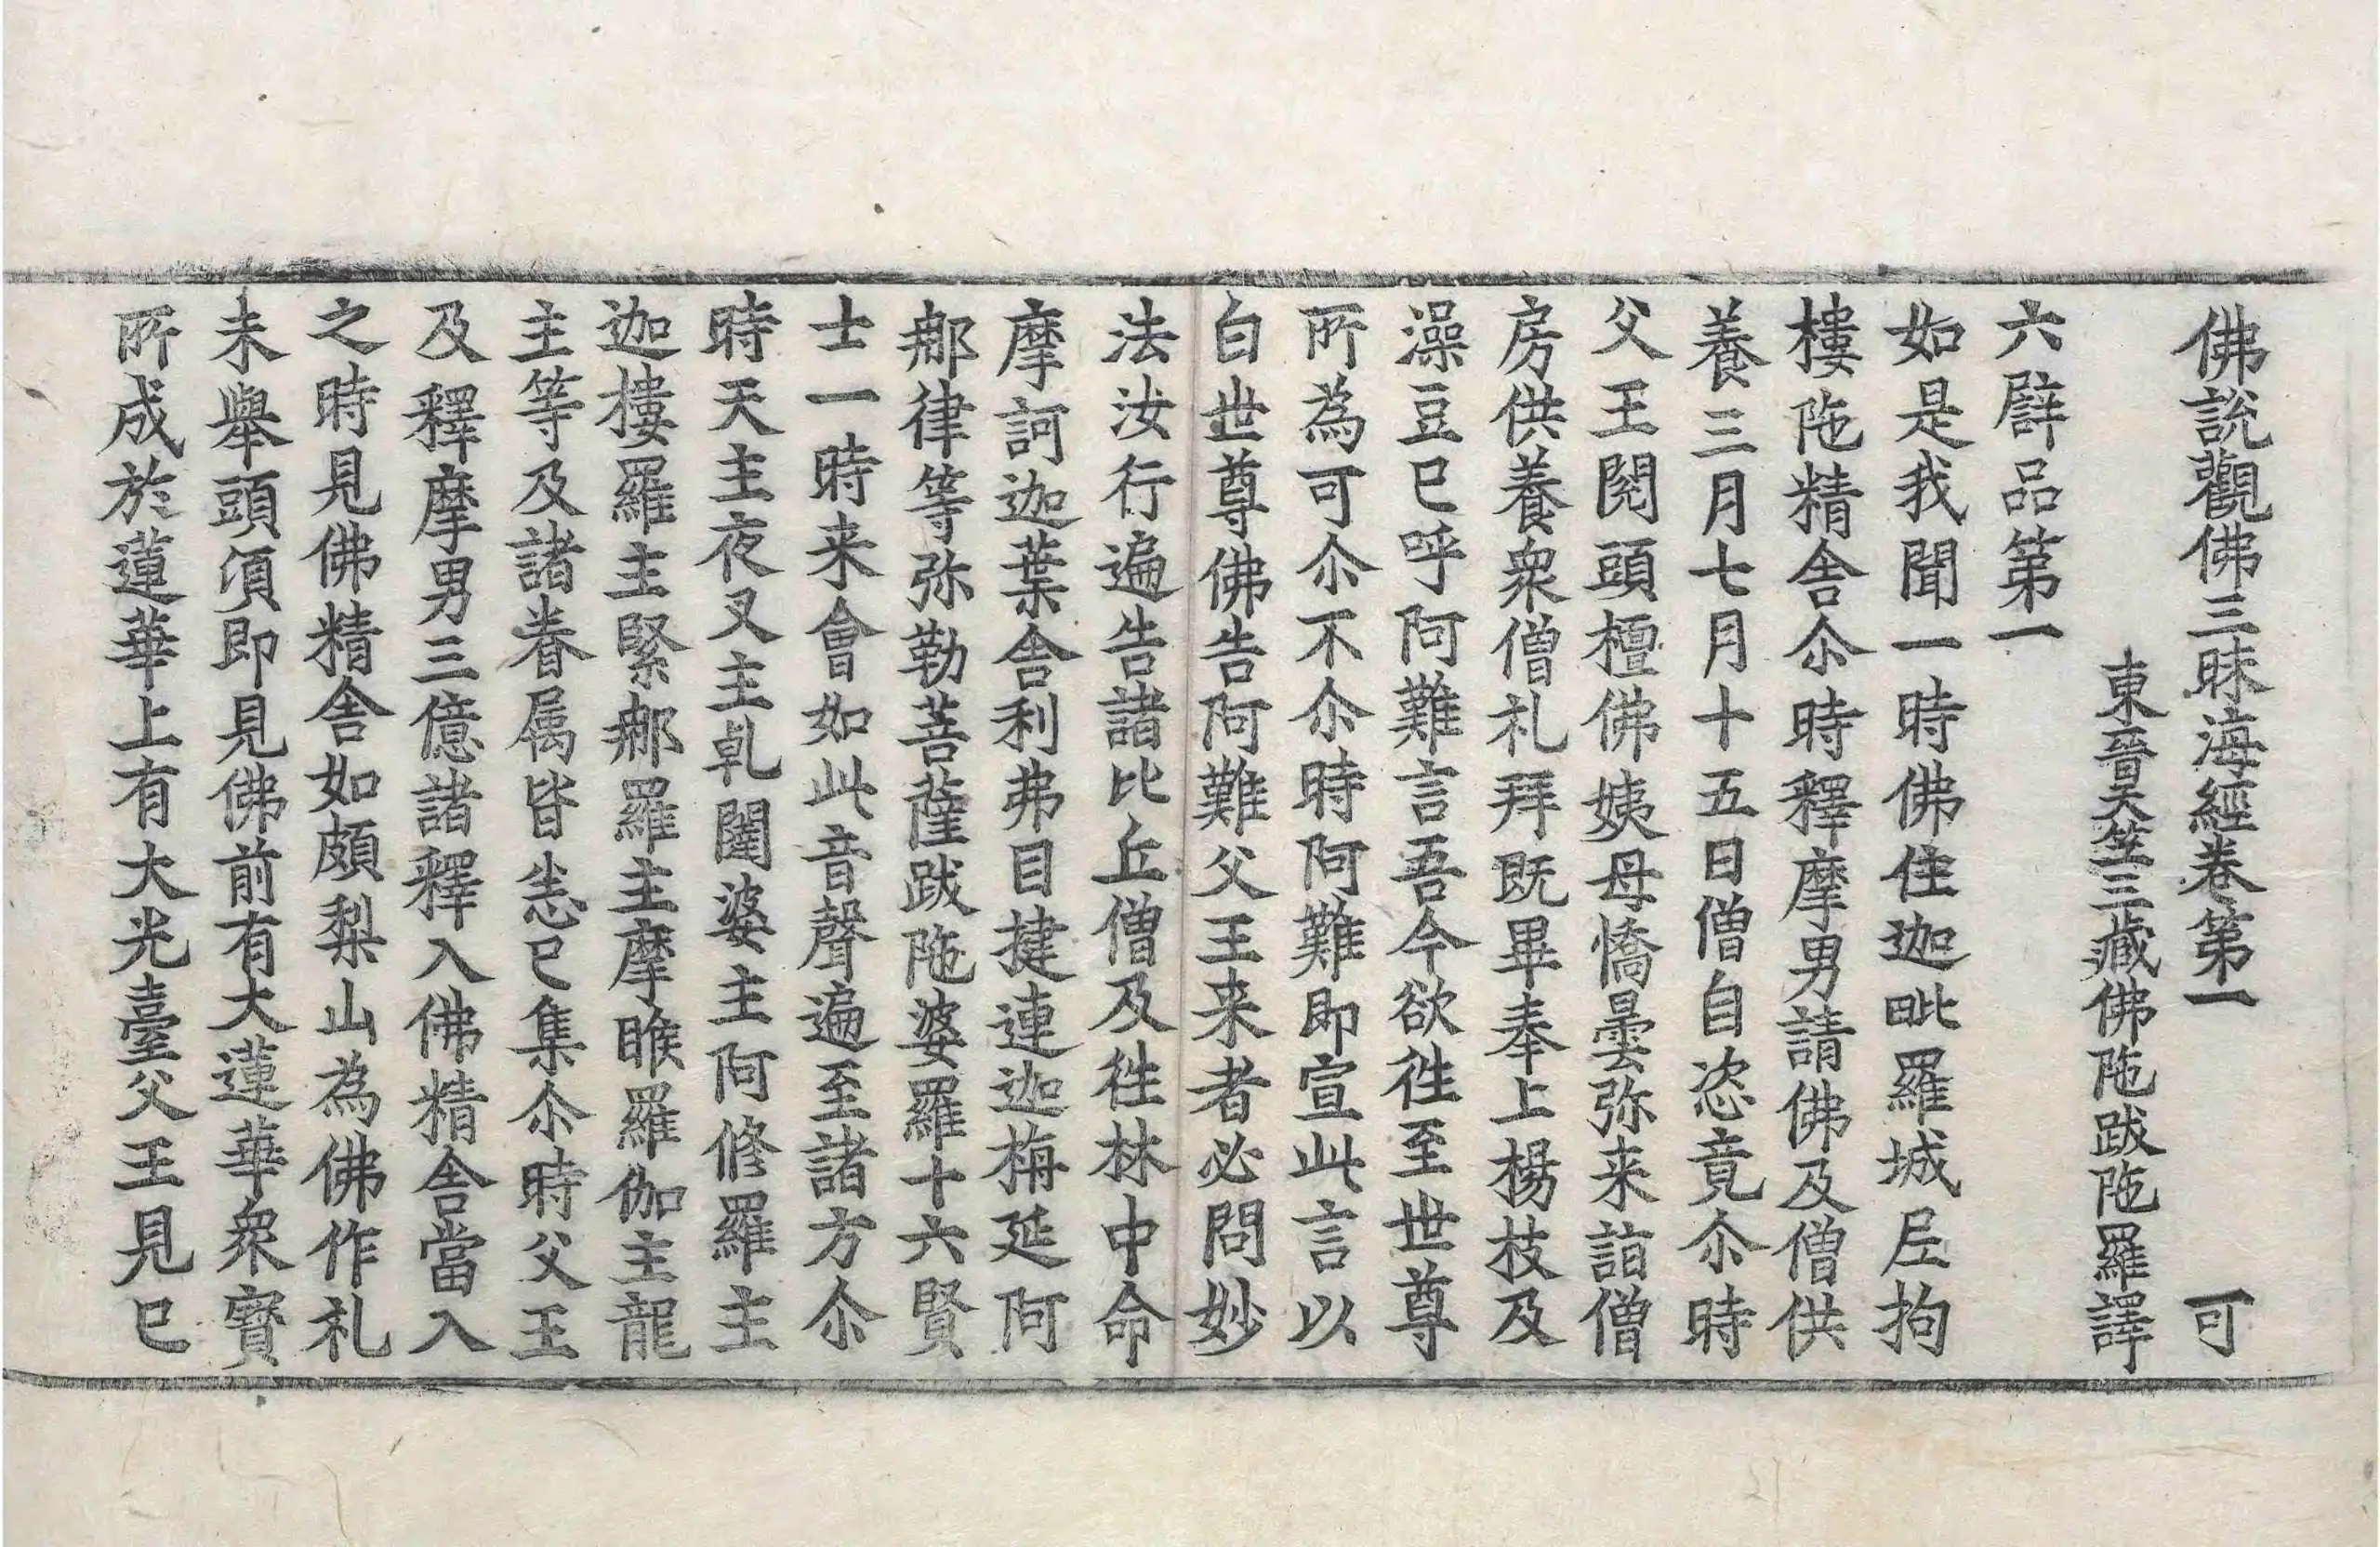 佛說觀佛三昧海經卷第一　可
東晉天竺三藏佛陁跋陁羅譯
六譬品第一
如是我聞一時佛住迦毗羅城尼拘
樓陁精舍尒時釋摩男請佛及僧供
養三月七月十五日僧自恣竟尒時
父王閱頭檀佛姨母憍曇弥来詣僧
房供養衆僧礼拜既畢奉上楊枝及
澡豆已呼阿難言吾今欲徃至世尊
所為可尒不尒時阿難即宣此言以
白世尊佛告阿難父王来者必問妙
法汝行遍告諸比丘僧及徃林中命
摩訶迦葉舍利弗目揵連迦栴延阿
那律等弥勒菩薩跋陁婆羅十六賢
士一時来會如此音聲遍至諸方尒
時天主夜叉主乹闥婆主阿修羅主
迦樓羅主緊那羅主摩睺羅伽主龍
主等及諸眷属皆悉已集尒時父王
及釋摩男三億諸釋入佛精舍當入
之時見佛精舍如頗梨山為佛作礼
未舉頭湏即見佛前有大蓮華衆寶
所成於蓮華上有大光臺父王見已